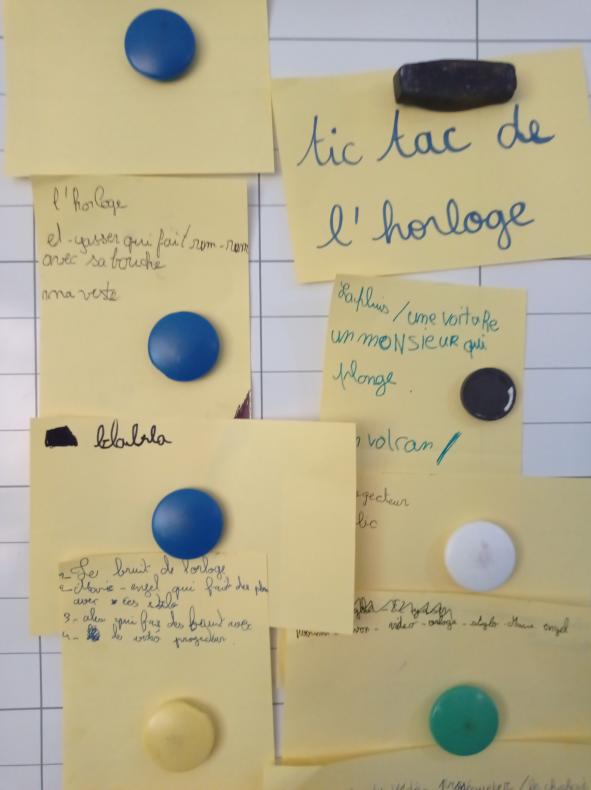 tic tac de
l'horloge
l'horloge
et-yasser qui fait rom-rom
avec sa bouche
ma veste
La pluis / une voiture
un monsieur qui
plonge.
volcan /
blabla
1- Le bruit de l'orloge
2- Marie-angel qui fait des
avec ces stilo
3- alex qui fait des bruit avec
4- le vidéo
vidéo - orloge - stylo Marie angel